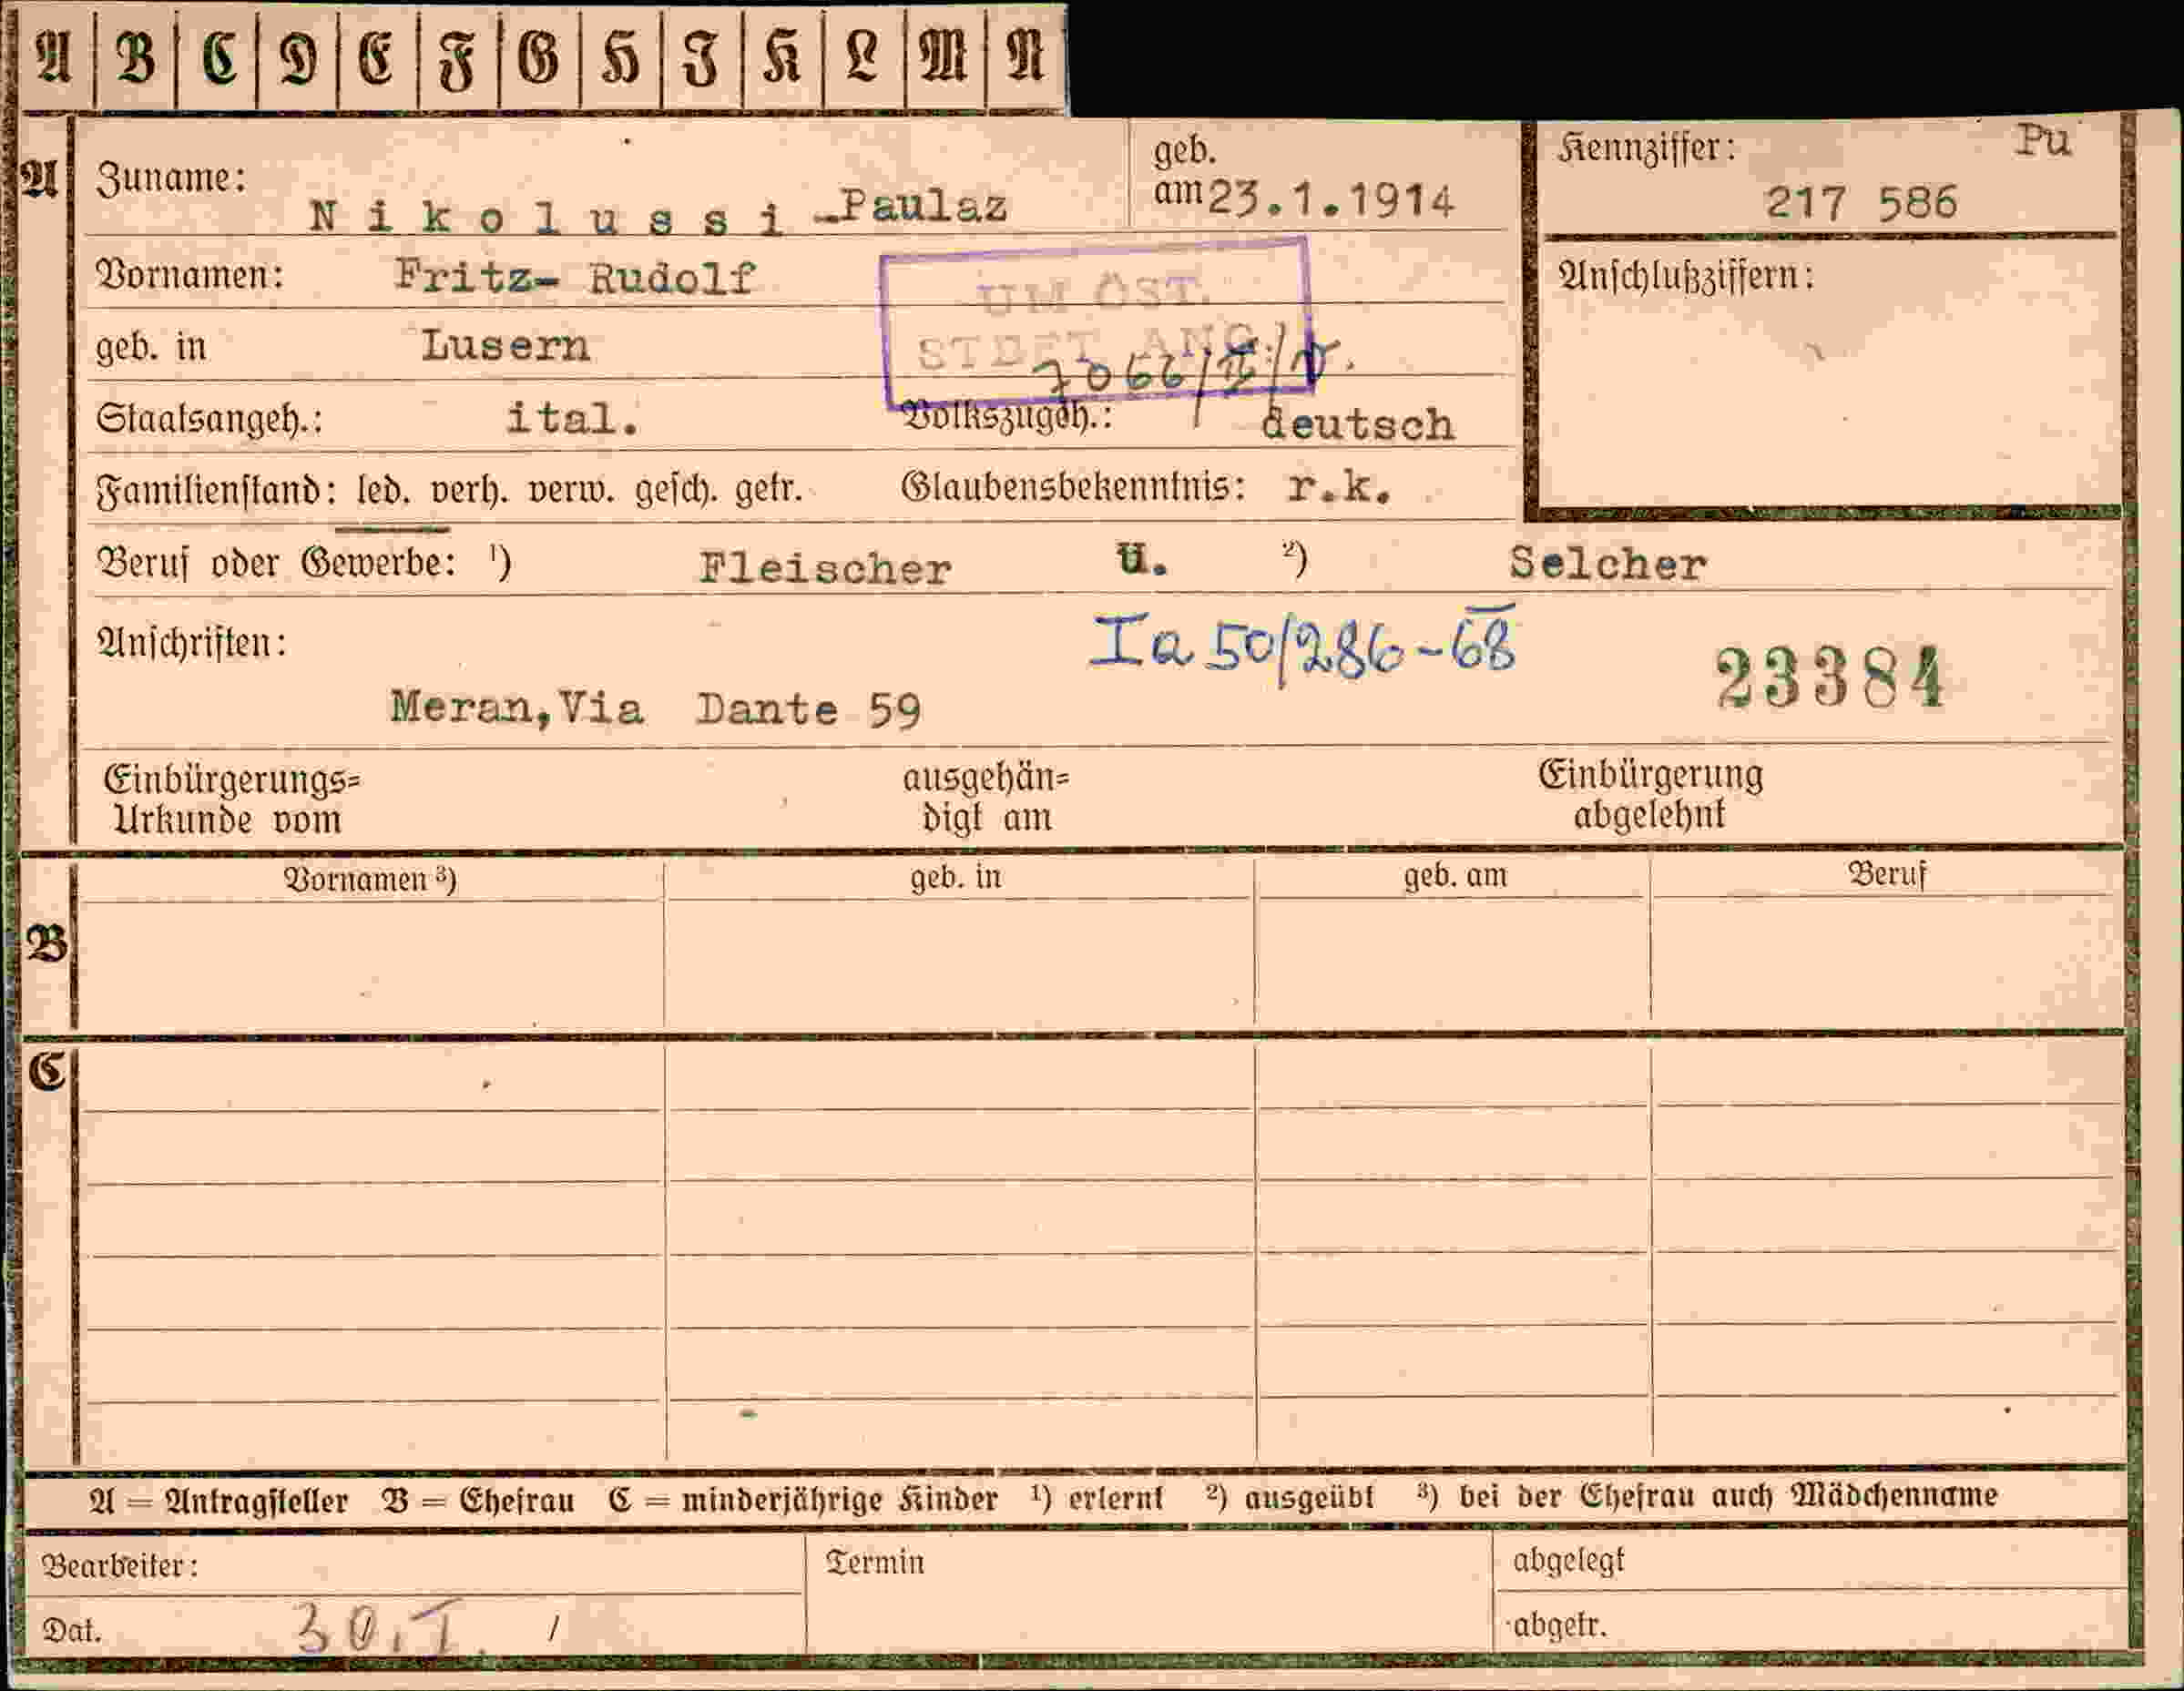 A B C D E F G H J K L M N
A
Zuname: Nikolussi-Paulaz
geb. am 23.1.1914
Kennziffer: Pu
217 586
Vornamen: Fritz- Rudolf
UM ÖST.
Anschlußziffern:
geb. in Lusern
7066/II/
Staatsangeh.: ital. Volkszugeh.: deutsch
Familienstand: led. verh. verw. gesch. getr. Glaubensbekenntnis: r.k.
Beruf oder Gewerbe: ¹) Fleischer u. ²) Selcher
Anschriften: Ia 50/286-68
23384
Meran, Via Dante 59
Einbürgerungs= ausgehän= Einbürgerung
Urkunde vom digt am abgelehnt
B
Vornamen ³) geb. in geb. am Beruf
C
A = Antragsteller B = Ehefrau C = minderjährige Kinder ¹) erlernt ²) ausgeübt ³) bei der Ehefrau auch Mädchenname
Bearbeiter: Termin abgelegt
Dat. 30.I. / abgetr.